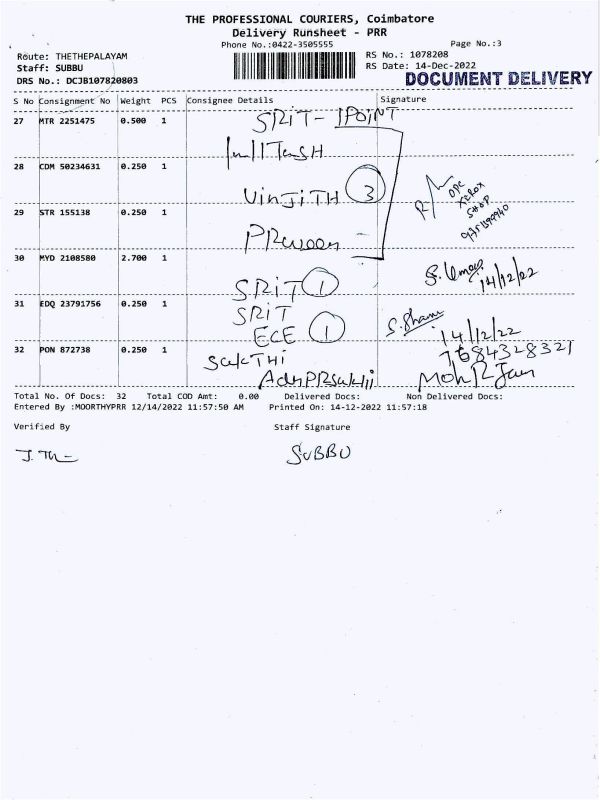 THE PROFESSIONAL COURIERS, Coimbatore
Delivery Runsheet - PRR
Phone No.:0422-3505555
Page No.:3
Route: THETHEPALAYAM
RS No.: 1078208
Staff: SUBBU
RS Date: 14-Dec-2022
DRS No.: DCJB107820803
DOCUMENT DELIVERY
S No Consignment No Weight PCS Consignee Details Signature
27 MTR 2251475 0.500 1 SRiT- 1POiNT
28 CDM 50234631 0.250 1
VinJiTH 3
29 STR 155138 0.250 1
OPC
XEROX
SHOP
PRaveen
30 MYD 2108580 2.700 1
SRiT 1
14/12/22
31 EDQ 23791756 0.250 1 SRiT
ECE 1
S. Sham
14/12/22
32 PON 872738 0.250 1 SakTHi
7684328321
Total No. Of Docs: 32 Total COD Amt: 0.00 Delivered Docs: Non Delivered Docs:
Entered By :MOORTHYPRR 12/14/2022 11:57:50 AM Printed On: 14-12-2022 11:57:18
Verified By Staff Signature
SUBBU